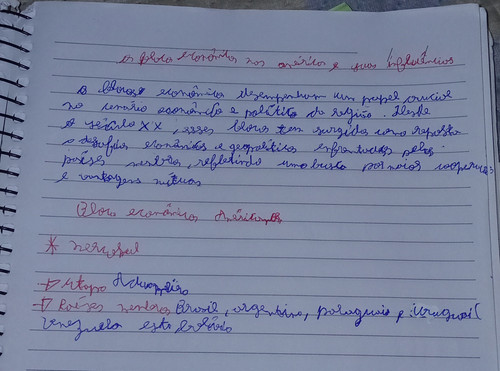 os bloco econômico nas américa e suas influências
o blocos econômico desempenham um papel crucial
no cenário econômico e político da região. Desde
o século XX, esses blocos tem surgido como resposta
a desafios econômicos e geopolíticos enfrentados pelos
países membro, refletindo uma busca por maior
e vantagens mútuas
Bloco econômico
* mercosul
Etapa
Países membros Brasil, argentina, paraguai e Uruguai
Venezuela está